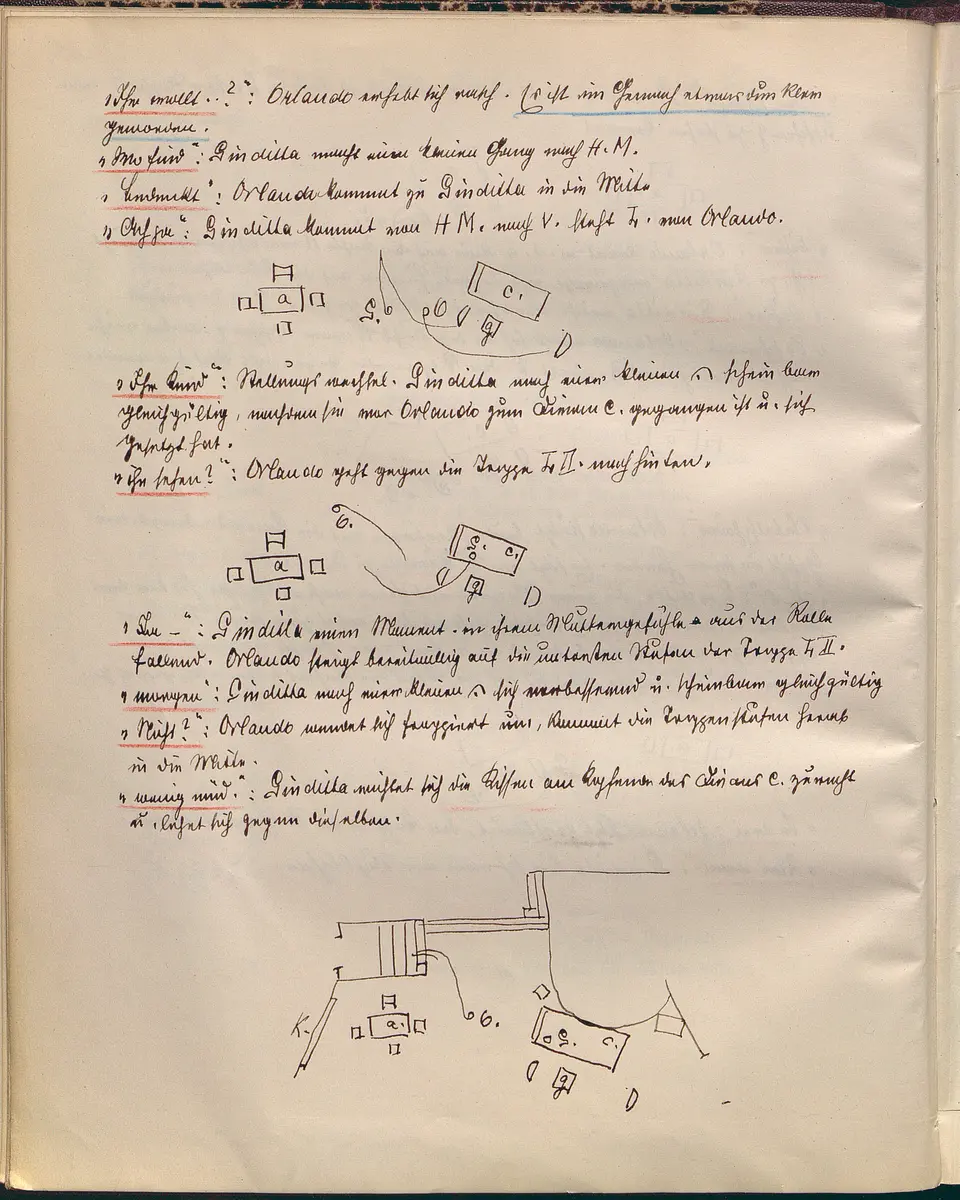 „Ihr wollt..?": Orlando erhebt sich rasch. Es ist im Gemach etwas dunkler
geworden.
„Wo sind": Giuditta macht einen kleinen Gang nach H.M.
„bedrückt": Orlando kommt zu Giuditta in die Mitte
„Ach ja": Giuditta kommt von H M. nach V. steht L. von Orlando.
a
c.
G.
O
g
„Ihr Kind": Stellungswechsel. Giuditta nach einer kleinen 𝄐 scheinbar
gleichgültig, nachdem sie vor Orlando zum Divan c. gegangen ist u. sich
gesetzt hat.
„ihn sehen?": Orlando geht gegen die Treppe L II. nach hinten.
O.
a
G.
c.
g
„Ja –": Giuditta einen Moment in ihrem Muttergefühle aus der Rolle
fallend. Orlando steigt bereitwillig auf die untersten Stufen der Treppe L II.
„morgen": Giuditta nach einer kleinen 𝄐 sich verbessernd u. scheinbar gleichgültig
„Nicht?": Orlando wendet sich frappiert um, kommt die Treppenstufen herab
in die Mitte.
„wenig müd.": Giuditta richtet sich die Kissen am Kopfende des Divans c. zurecht
u. lehnt sich gegen dieselben.
K.
a.
O.
G.
c.
g